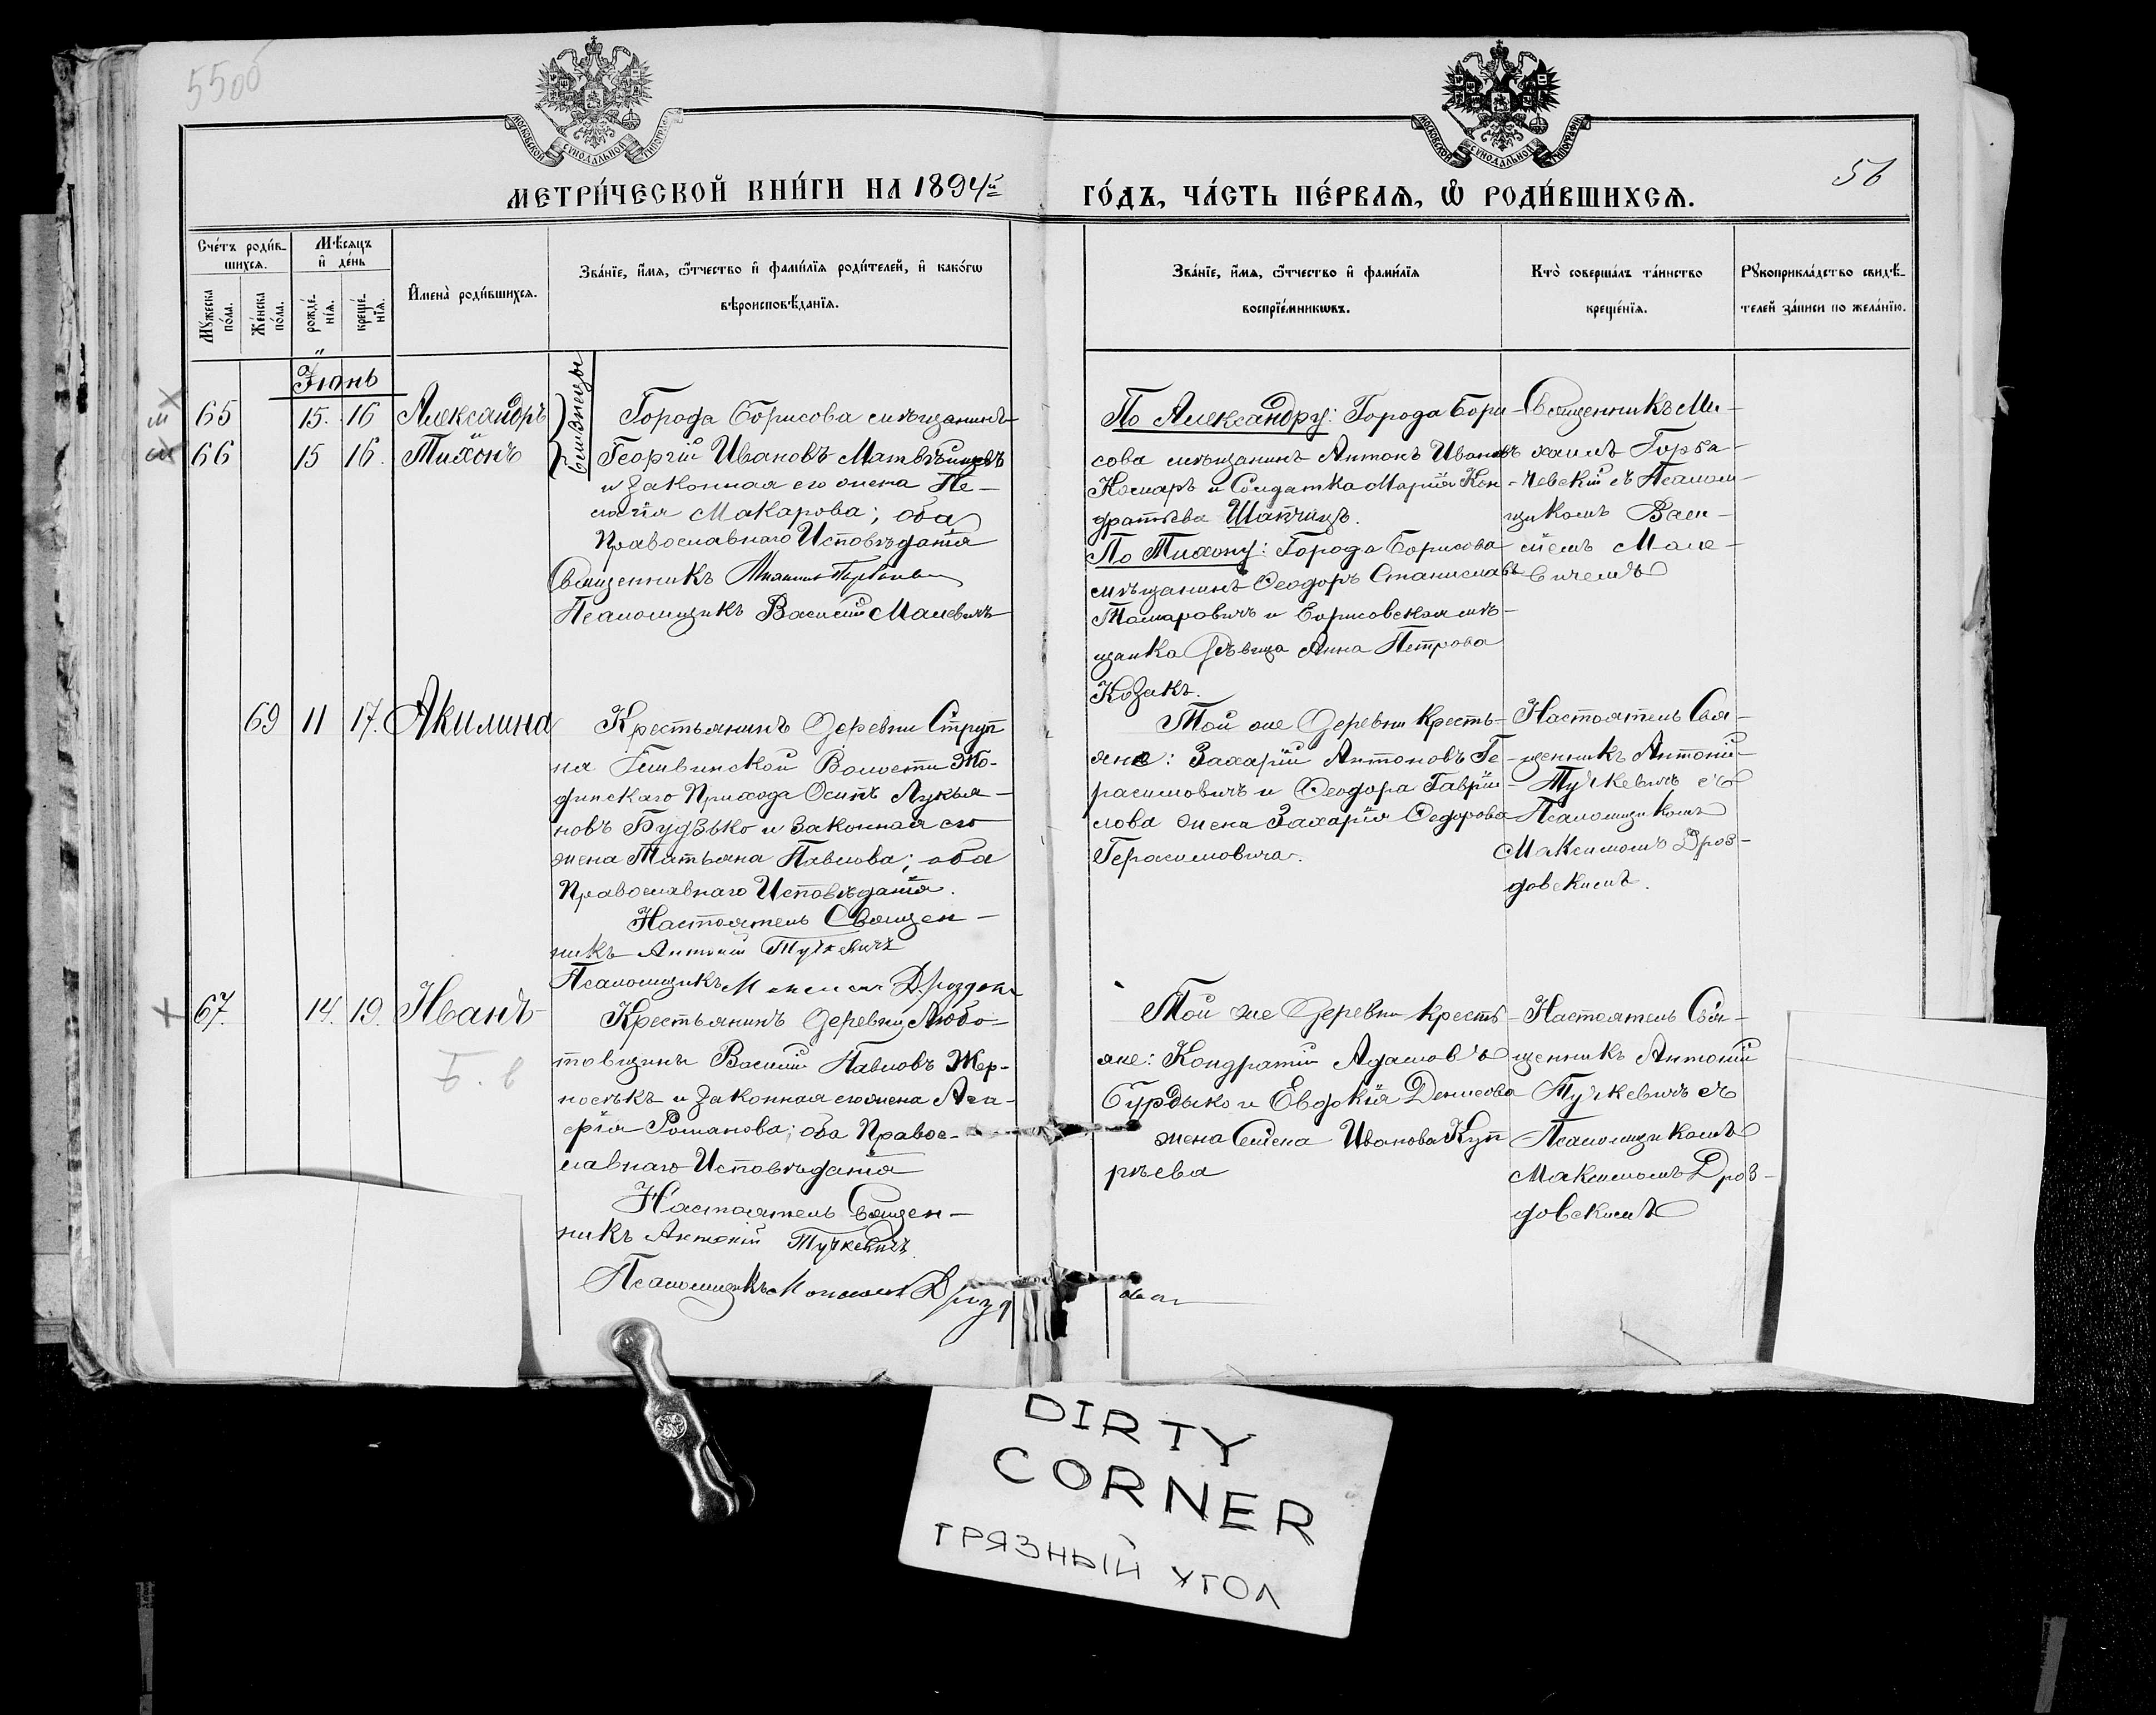 5500
МОСКОВСКОЙ СѴНОДАЛЬНОЙ ТИПОГРАФІИ
МОСКОВСКОЙ СѴНОДАЛЬНОЙ ТИПОГРАФІИ
56
МЕТРИ́ЧЕСКОЙ КНИ́ГИ НА 1894й
ГО́ДЪ, ЧА́СТЬ ПЕ́РВАѦ, Ѽ РОДИ́ВШИХСѦ.
Сче́тъ роди́в-
шихсѧ.
Мꙋ́жеска по́ла.
Же́нска по́ла.
Мѣ́сѧцъ
и҆ де́нь
рожде́-
нїѧ.
креще́-
нїѧ.
И҆мена̀ роди́вшихсѧ.
Зва́нїе, и҆́мѧ, ѻ҆́тчество и҆ фами́лїѧ роди́телей, и҆ како́гѡ
вѣроисповѣ́данїѧ.
Зва́нїе, и҆́мѧ, ѻ҆́тчество и҆ фами́лїѧ
воспрїе́мникѡвъ.
Кто̀ соверша́лъ та́инство
креще́нїѧ.
Рꙋкоприкла́дство свидѣ́-
телей за́писи по жела́нїю.
Іюнь
65 15. 16 Александръ
66 15 16. Тихонъ
близнецы
Города Борисова мѣщанинъ
Георгій Ивановъ
и законная его жена Пе-
лагія Макарова; оба
Православнаго Исповѣданія
Священникъ
Псаломщикъ Василій Малевичъ
По Александру: Города Бори-
сова мѣщанинъ Антонъ Ивановъ
и Солдатка Марія Кон-
дратьева
По Тихону: Города Борисова
мѣщанинъ Ѳеодоръ Станиславовъ
и Борисовская мѣ-
щанка Дѣвица Анна Петрова
Козакъ.
Священникъ Ми-
хаилъ Горба-
чевскій съ Псалом-
щикомъ Васи-
ліемъ Мале-
вичемъ
69 11 17. Акилина
Крестьянинъ Деревни Струп-
ня Гливинской Волости Жо-
динскаго Прихода Осипъ Лукья-
новъ Будзько и законная его
жена Татьяна Павлова; оба
Православнаго Исповѣданія.
Настоятель Священ-
никъ Антоній Тучкевичъ
Псаломщикъ
Той же Деревни Кресть-
яне: Захарій Антоновъ Ге-
расимовичъ и Ѳеодора Гаврі-
лова жена Захарія Ѳедорова
Герасимовича.
Настоятель Свя-
щенникъ Антоній
Тучкевичъ съ
Псаломщикомъ
Максимомъ Дроз-
довскимъ.
67. 14. 19. Иванъ
Б. в
Крестьянинъ Деревни Любо-
товщины Василій Павловъ Жер-
носѣкъ и законная его жена Ага-
Романова; оба Правос-
лавнаго Исповѣданія
Настоятель Священ-
никъ Антоній Тучкевичъ.
Псаломщикъ
Той же Деревни кресть-
яне: Кондратій Адамовъ
Бурдыко и Евдокія Денисова
жена Семена Иванова Куп-
рѣева
Настоятель Свя-
щенникъ Антоній
Тучкевичъ съ
Псаломщикомъ
Максимомъ Дроз-
довскимъ
DIRTY
CORNER
ГРЯЗНЫЙ УГОЛ